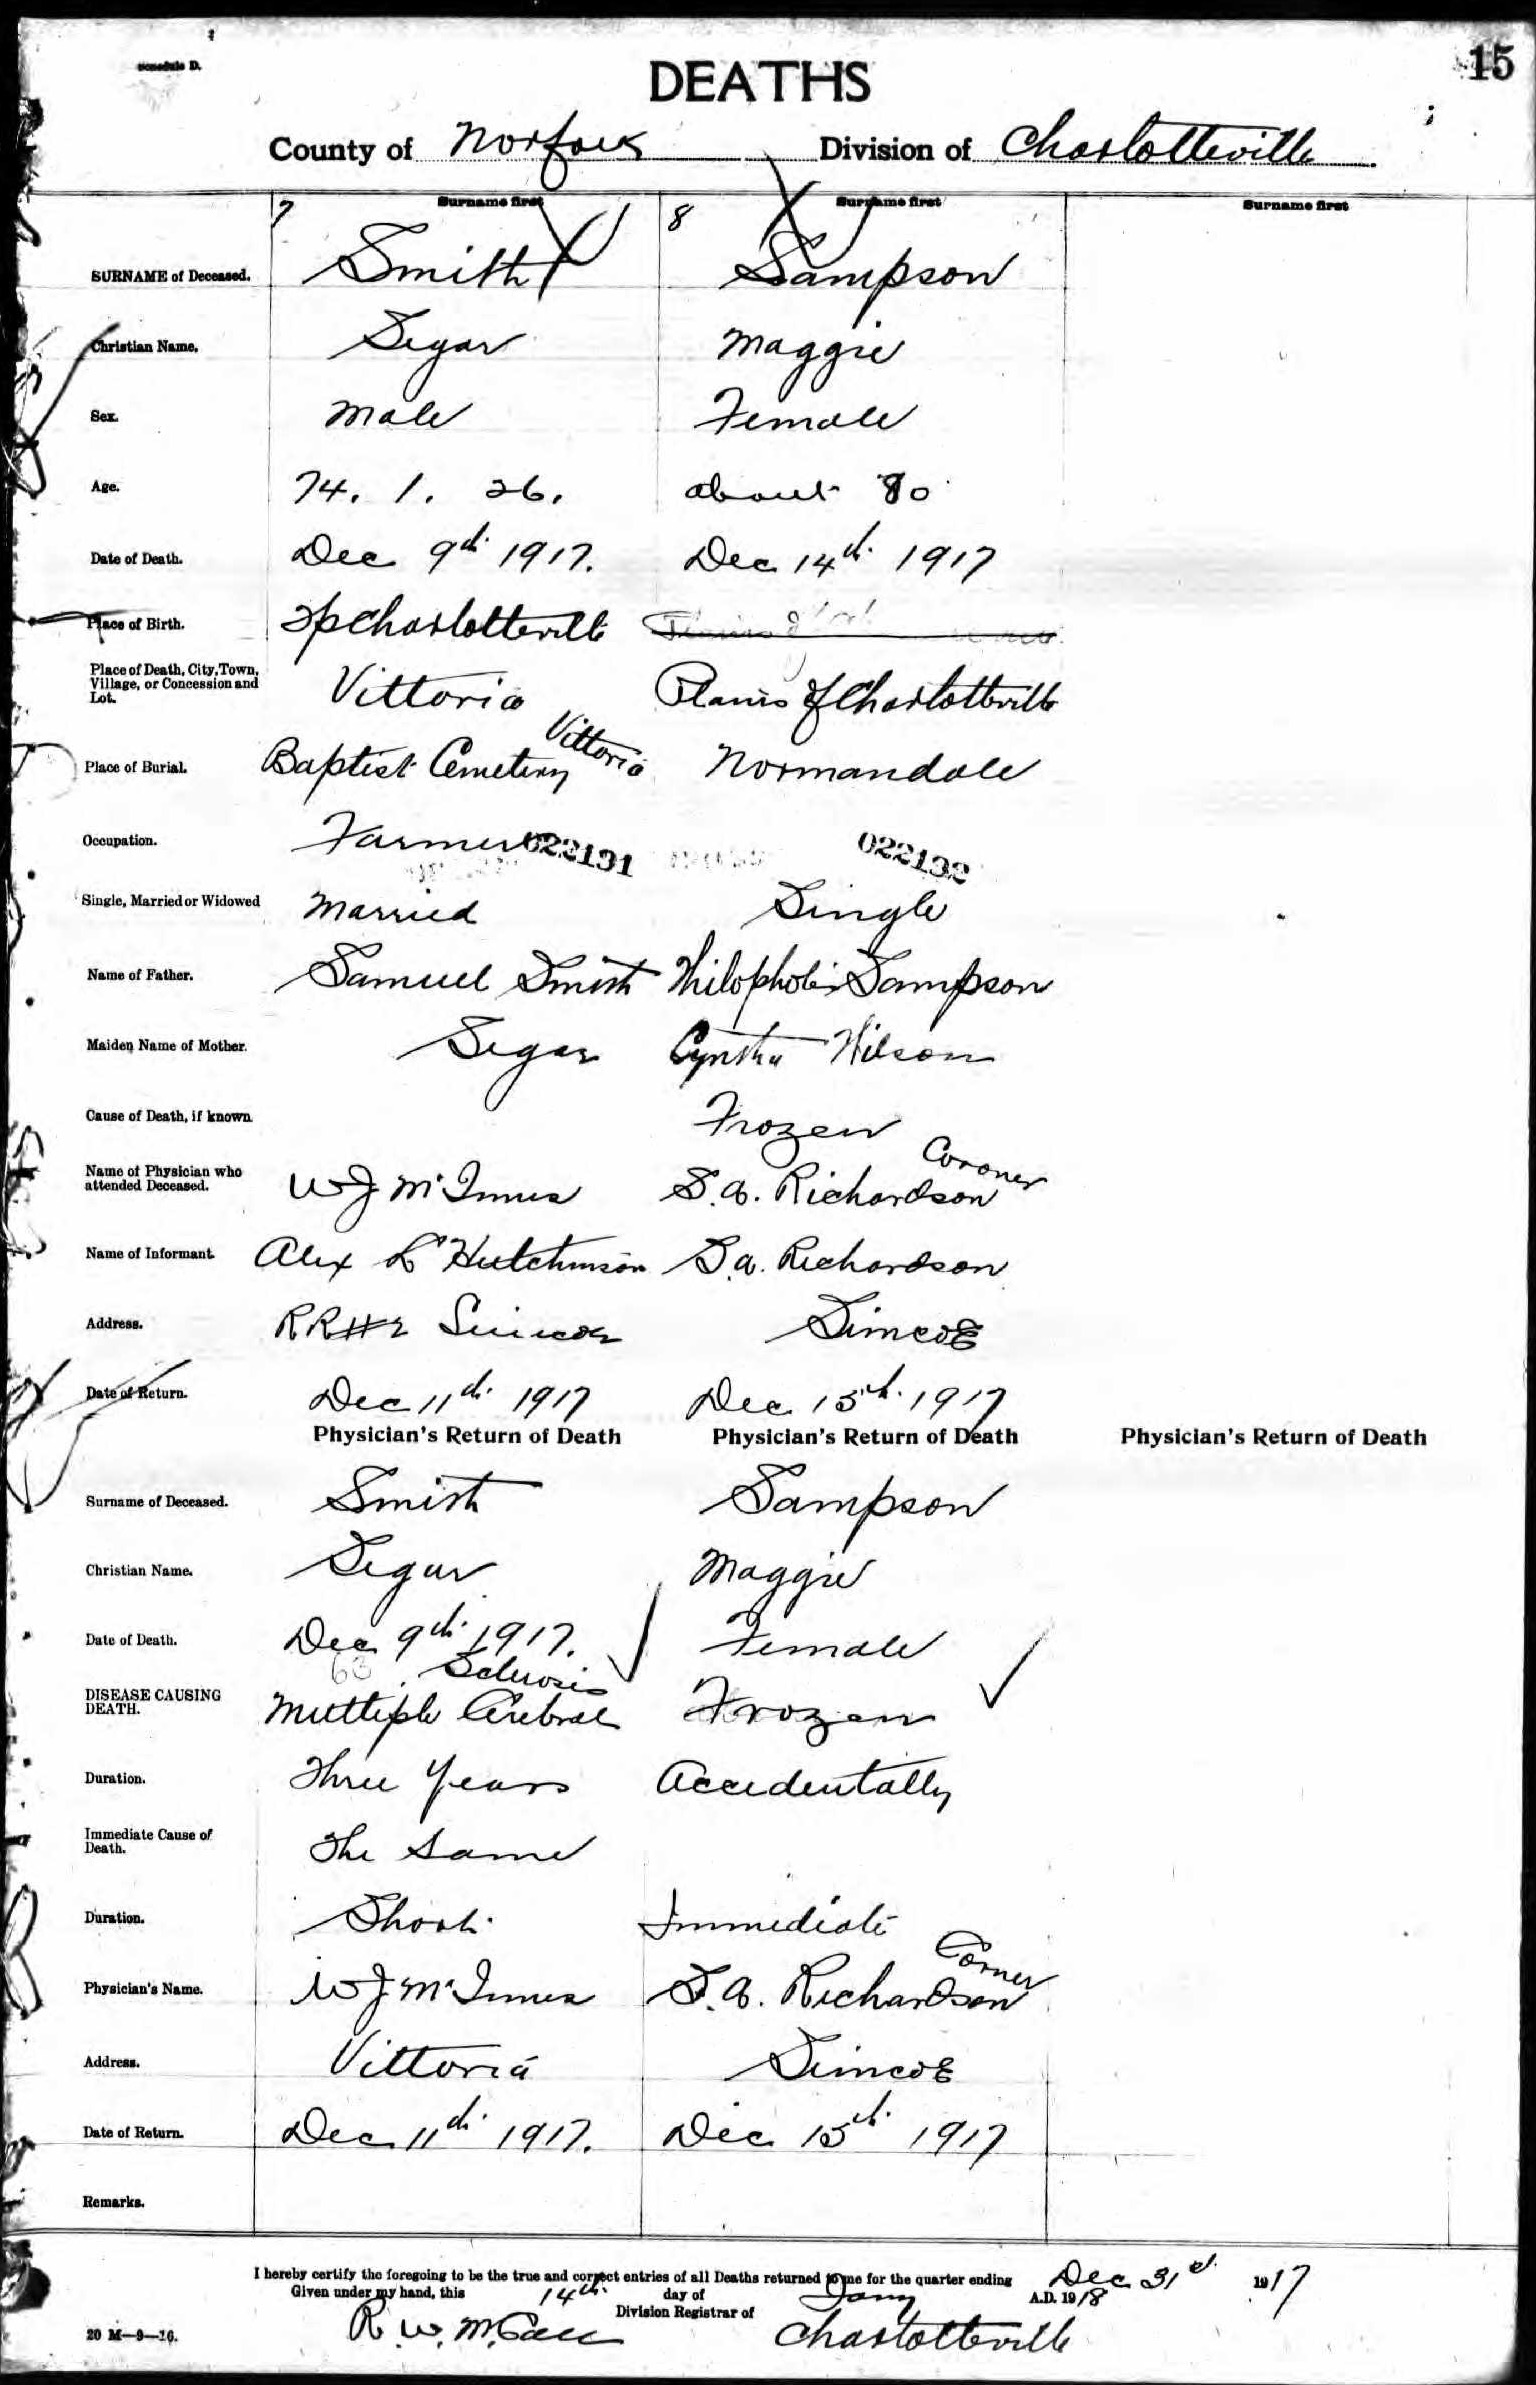 Schedule D.
15
DEATHS
County of Norfolk Division of Charlotteville
7 Surname first 8 Surname first Surname first
SURNAME of Deceased. Smith Sampson
Christian Name. Segar Maggie
Sex. Male Female
Age. 74. 1. 26. about 80
Date of Death. Dec 9th 1917. Dec 14th 1917
Place of Birth. Tp Charlotteville
Place of Death, City, Town, Village, or Concession and Lot. Vittoria Plains of Charlotteville
Place of Burial. Baptist Cemetery Vittoria Normandale
Occupation. Farmer 022131 022132
Single, Married or Widowed Married Single
Name of Father. Samuel Smith Sampson
Maiden Name of Mother. Segar Cyntha Wilson
Cause of Death, if known. Frozen
Name of Physician who attended Deceased. W J McInnes S. A. Richardson Coroner
Name of Informant. Alex L Hutchinson S. A. Richardson
Address. RR#2 Simcoe Simcoe
Date of Return. Dec 11th 1917 Dec 15th 1917
Physician's Return of Death Physician's Return of Death Physician's Return of Death
Surname of Deceased. Smith Sampson
Christian Name. Segar Maggie
Date of Death. Dec 9th 1917. Female
DISEASE CAUSING DEATH. 63 Multiple Cerebral Sclerosis Frozen
Duration. Three Years Accidentally
Immediate Cause of Death. The Same
Duration. Short Immediate
Physician's Name. W J McInnes S. A. Richardson Corner
Address. Vittoria Simcoe
Date of Return. Dec 11th 1917. Dec 15th 1917
Remarks.
I hereby certify the foregoing to be the true and correct entries of all Deaths returned to me for the quarter ending Dec 31st 1917
Given under my hand, this 14th day of Jany A.D. 1918
R. W. McCall Division Registrar of Charlotteville
20 M—9—16.